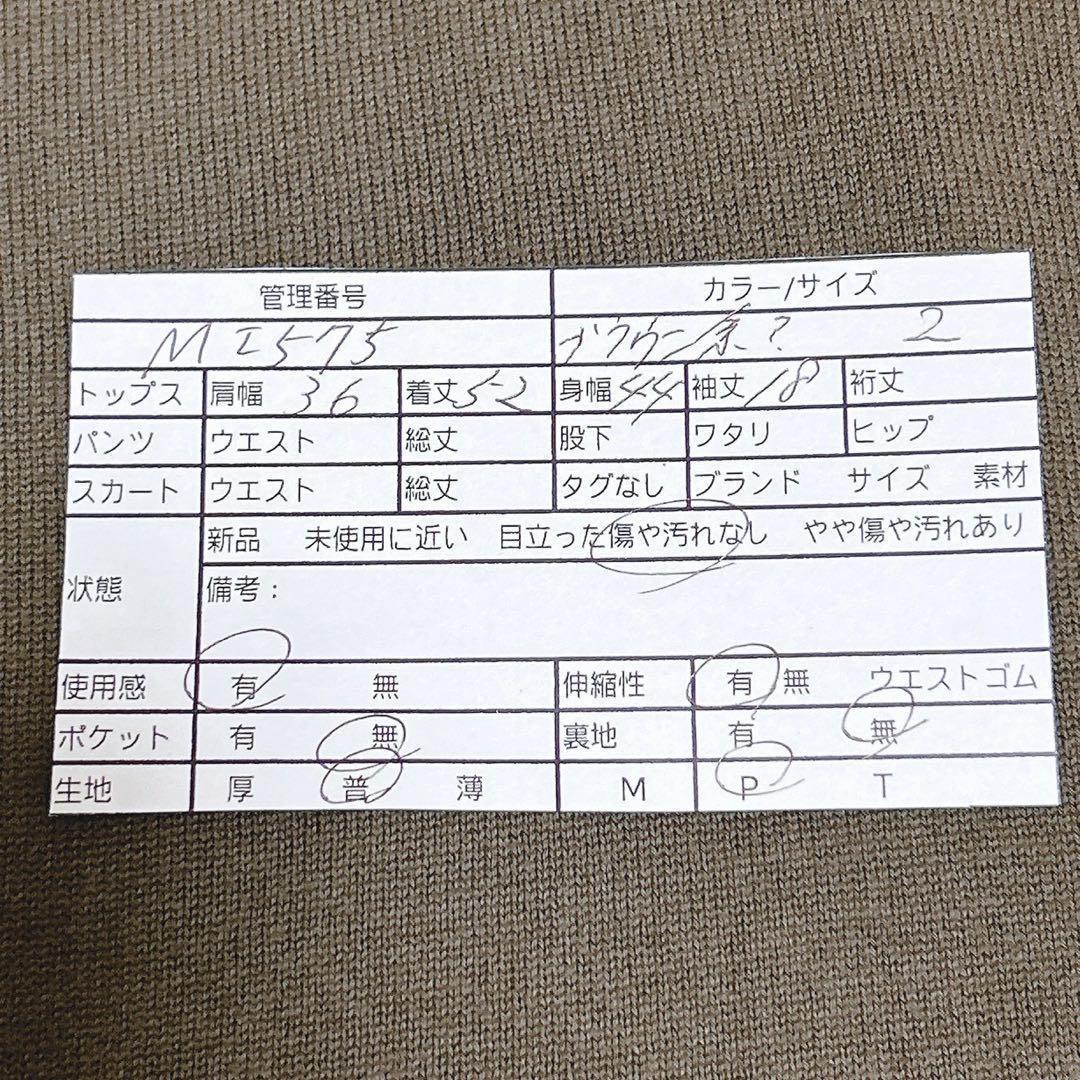 管理番号 カラー/サイズ
MI575 ブラウン系? 2
トップス 肩幅 36 着丈 52 身幅 44 袖丈 18 裄丈
パンツ ウエスト 総丈 股下 ワタリ ヒップ
スカート ウエスト 総丈 タグなし ブランド サイズ 素材
状態 新品 未使用に近い 目立った傷や汚れなし やや傷や汚れあり
備考:
使用感 有 無 伸縮性 有 無 ウエストゴム
ポケット 有 無 裏地 有 無
生地 厚 普 薄 M P T